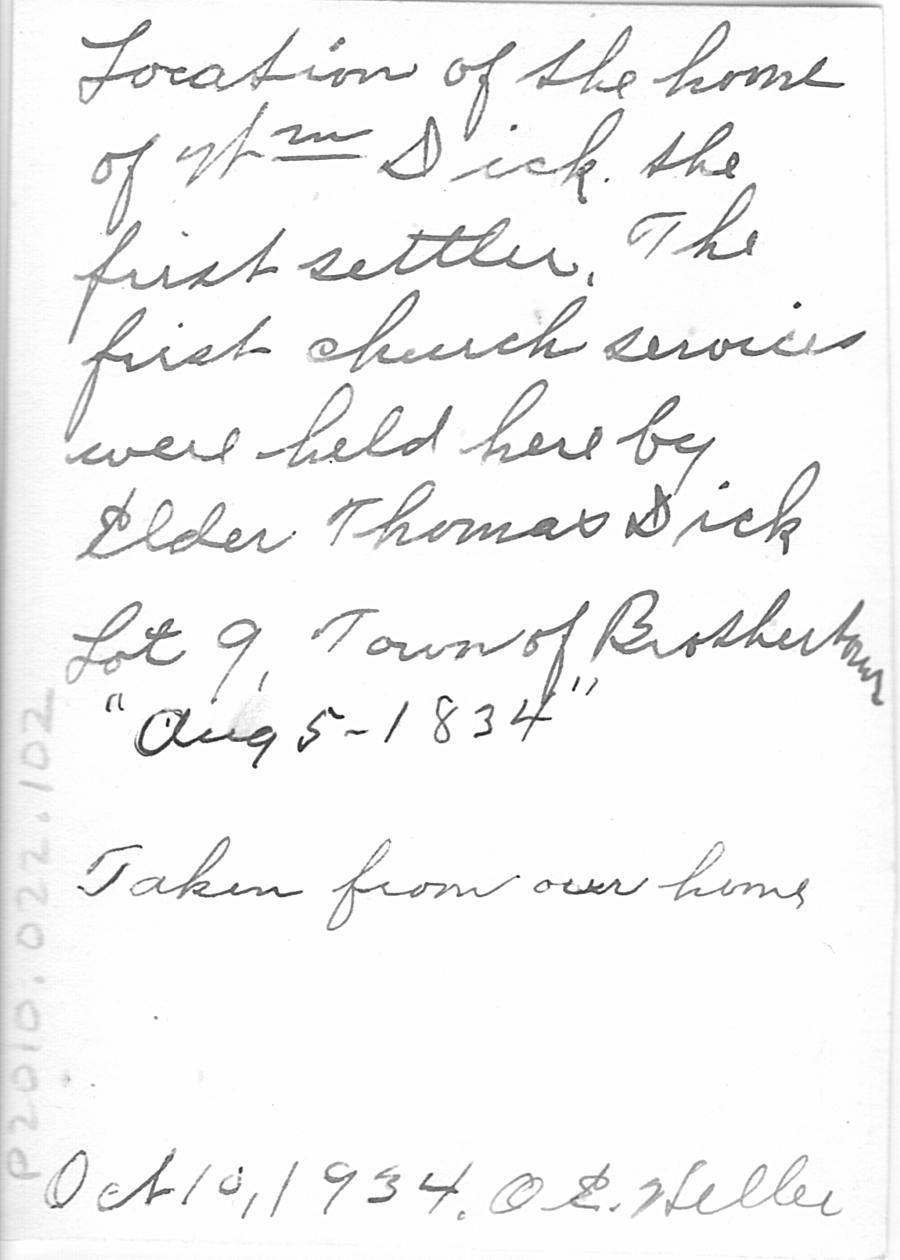 Location of the home
of Wm Dick. the
first settler. The
first church services
were held here by
Elder Thomas Dick
Lot 9, Town of Brothertown
"Aug 5-1834"
Taken from our home
Oct 10, 1934. O E.
P2010.022.102